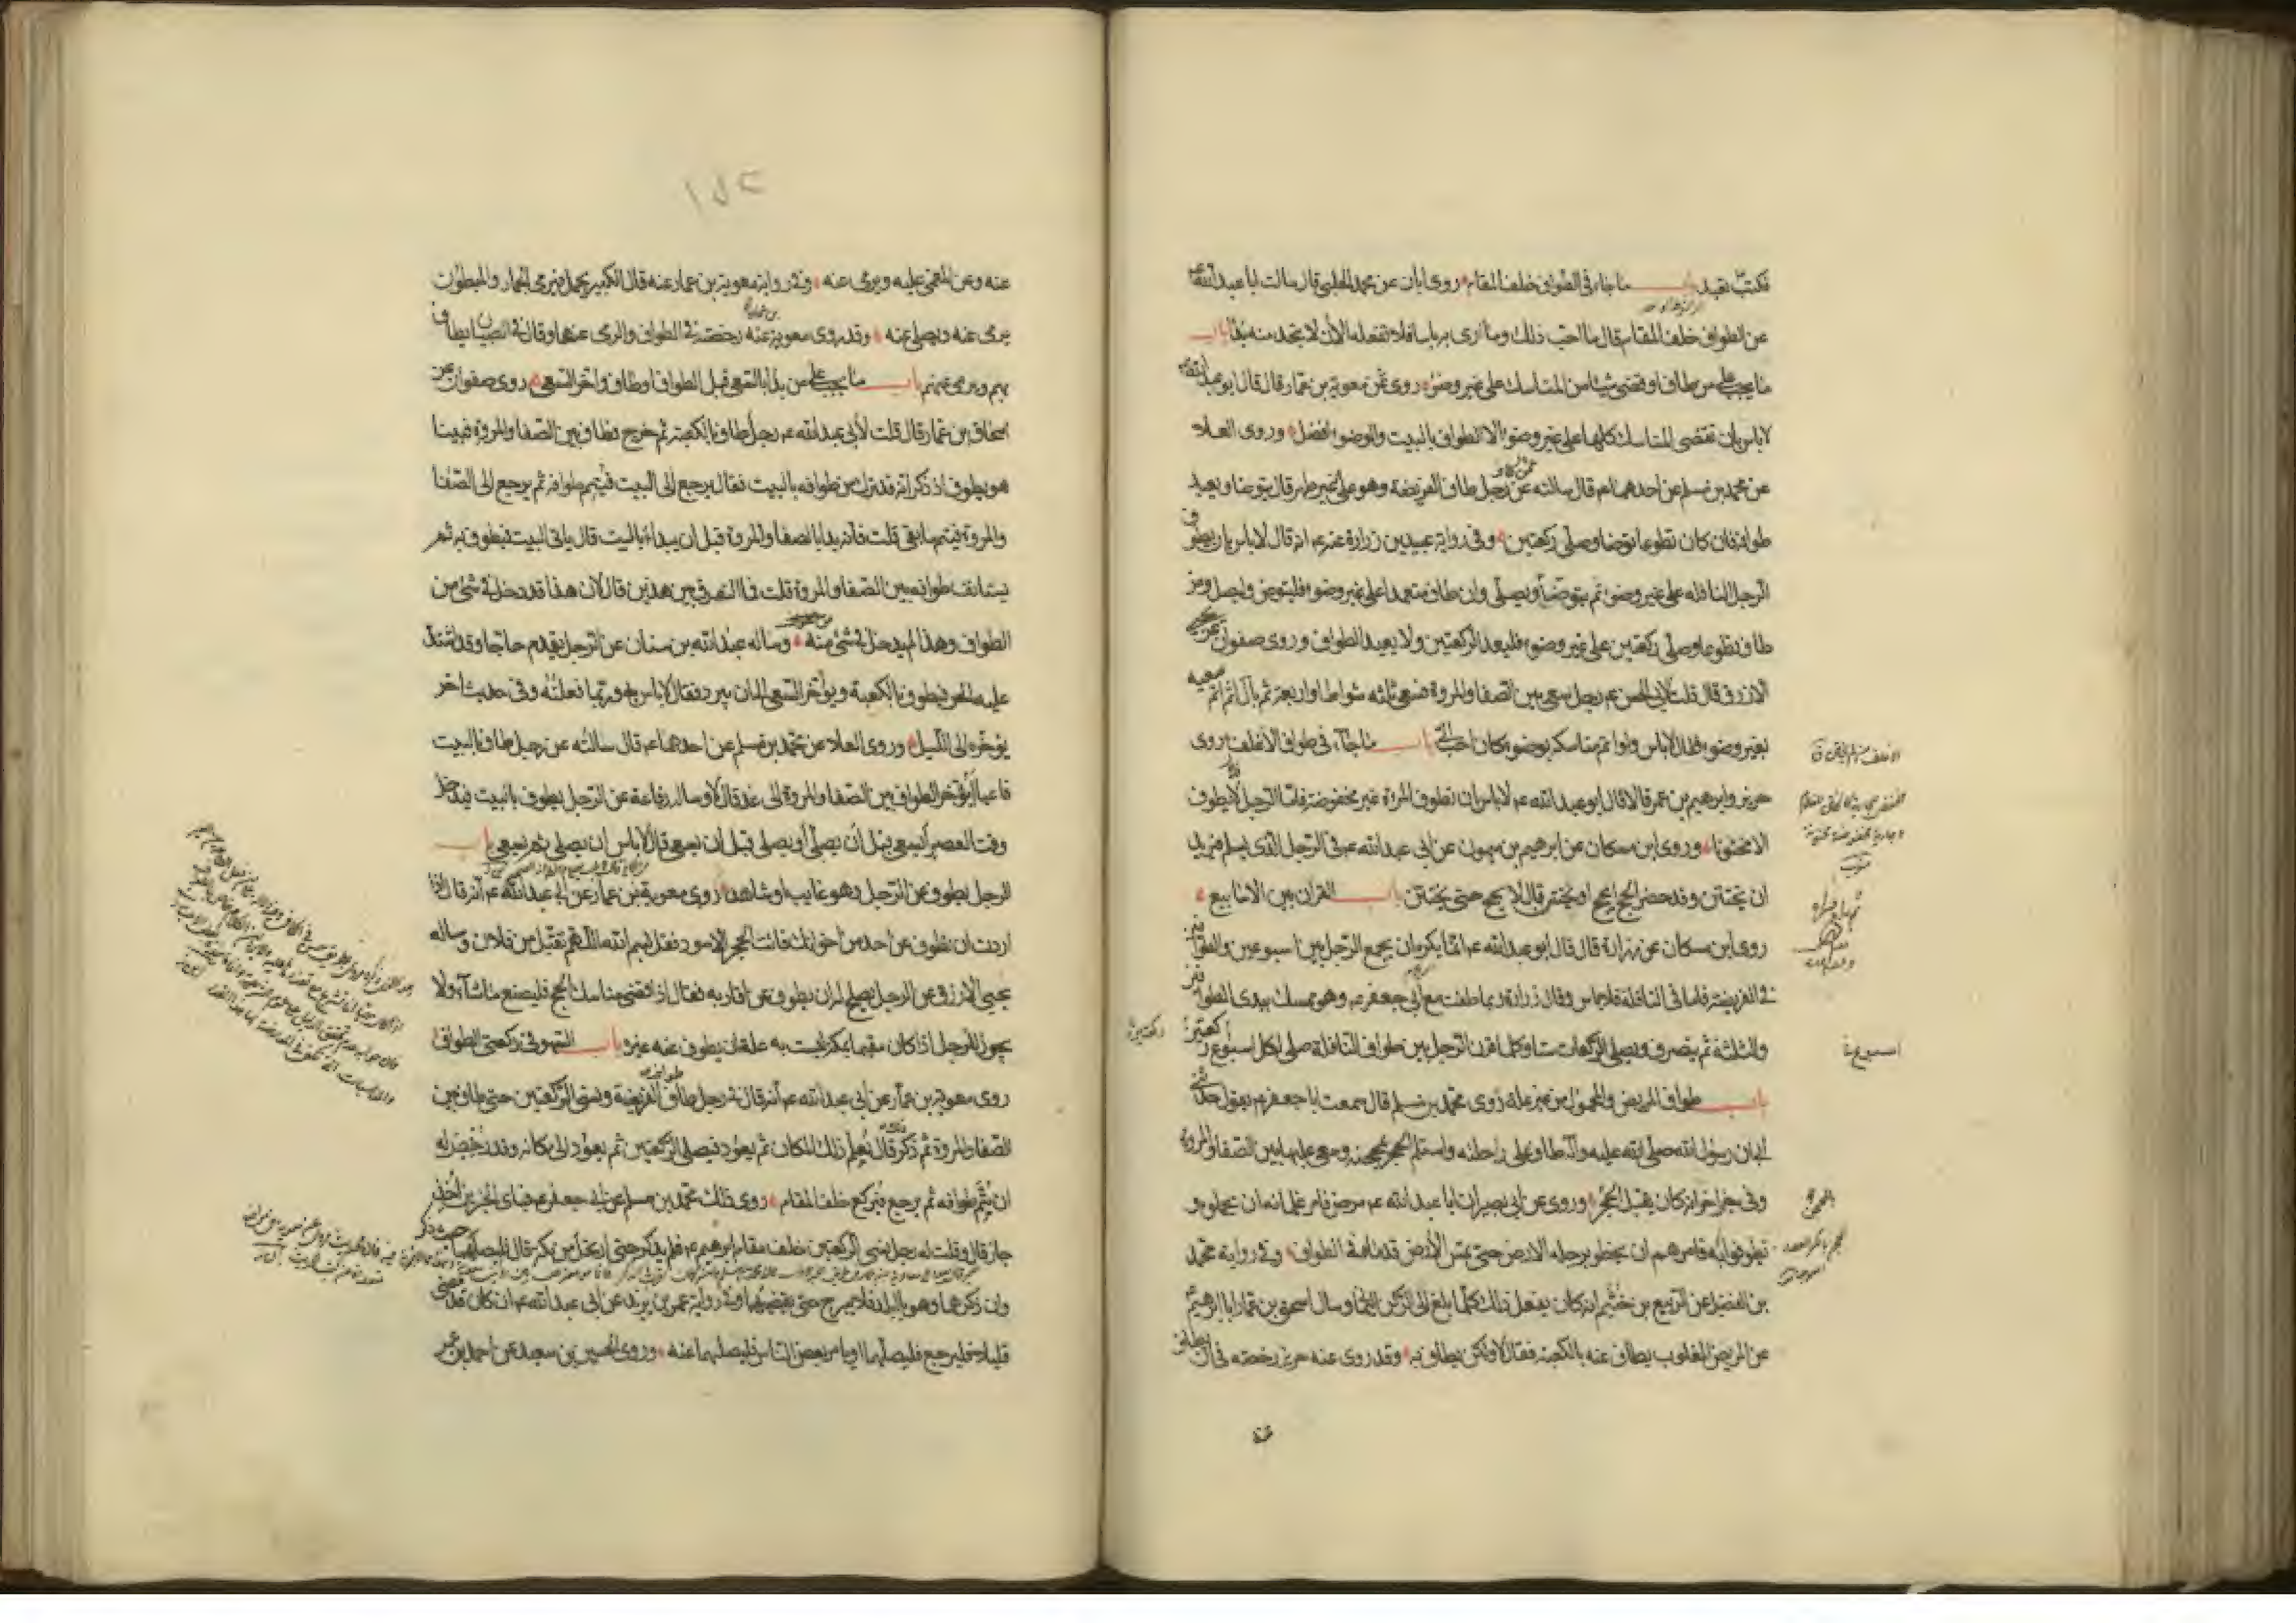 فكتب يعيد باب ما جاء في الطواف خلف المقام روى ابان عن محمد الحلبي قال سالت ابا عبد الله ع
عن الطواف خلف المقام قال ما احب ذلك وما ارى به باسا فلا تفعله الا ان لا تجد منه بدا باب
ما يجب على من طاف او قضى شيئا من المناسك على غير وضوء روى عن معوية بن عمار قال قال ابو عبد الله ع
لا باس بان تقضى المناسك كلها على غير وضوء الا الطواف بالبيت والوضوء افضل وروى العلاء
عن محمد بن مسلم عن احدهما ع قال سالته عن رجل طاف الفريضة وهو على غير طهر قال يتوضا ويعيد
طوافه فان كان تطوعا توضا وصلى ركعتين وفي رواية عبيد بن زرارة عنه ع انه قال لا باس بان يطوف
الرجل النافلة على غير وضوء ثم يتوضا ويصلى وان طاف متعمدا على غير وضوء فليتوض وليصل ومن
طاف تطوعا وصلى ركعتين على غير وضوء فليعد الركعتين ولا يعيد الطواف وروى صفوان عن يحيى
الازرق قال قلت لابى الحسن ع رجل سعى بين الصفا والمروة فسعى ثلثه شواط او اربعة ثم بال ثم اتم سعيه
بغير وضوء فقال لا باس ولو اتم مناسكه بوضوء كان احب الى باب ما جاء في طواف الاغلف روى
حريز وابرهيم بن عمر قالا قال ابو عبد الله ع لا باس ان تطوف المراة غير مخفوضة فاما الرجل فلا يطوف
الا مختونا وروى ابن مسكان عن ابرهيم بن ميمون عن ابي عبد الله ع في الرجل الذى يسلم فيريد
ان يختتن وقد حضر الحج ايحج او يختتن قال لا يحج حتى يختتن باب القران بين الاسابيع
روى ابن مسكان عن زرارة قال قال ابو عبد الله ع انما يكره ان يجمع الرجل بين اسبوعين والطوافين
في الفريضة فاما في النافلة فلا باس وقال زرارة ربما طفت مع ابي جعفر ع وهو ممسك بيدى الطوافين
والثلثة ثم ينصرف ويصلى الركعات ستا وكلما قرن الرجل بين طواف النافلة صلى لكل اسبوع ركعتين
باب طواف المريض والمحمول من غير علة روى محمد بن مسلم قال سمعت ابا جعفر ع يقول حدثنى
ابى ان رسول الله صلى الله عليه وآله طاف على راحلته واستلم الحجر بمحجنه وسعى عليها بين الصفا والمروة
وفي خبر اخر انه كان يقبل الحجر وروى عن ابي بصير ان ابا عبد الله ع مرض فامر غلمانه ان يحملوه و
يطوفوا به فامرهم ان يخطو برجله الارض حتى يمس الارض قدماه في الطواف وفي رواية محمد
بن الفضيل عن الربيع بن خثيم انه كان يفعل ذلك كلما بلغ الى الركن اليمانى وسال اسحق بن عمار ابا ابرهيم ع
عن المريض المغلوب يطاف عنه بالكعبة فقال لا ولكن يطاف به وقد روى عنه حريز رخصة في ان يطاف
عنه
اسبوع
١٥٢
عنه وعن المغمى عليه ويرمى عنه وفي رواية معوية بن عمار عنه قال الكبير يحمل فيرمى الجمار والمبطون
يرمى عنه ويصلى عنه وقد روى معوية عنه رخصة في الطواف والرمى عنهما وقال في الصبيان يطاف
بهم ويرمى عنهم باب ما يجب على من بدا بالسعى قبل الطواف او طاف واخر السعى روى صفوان عن
اسحاق بن عمار قال قلت لابى عبد الله ع رجل طاف بالكعبة ثم خرج فطاف بين الصفا والمروة فبينا
هو يطوف اذ ذكر انه قد ترك من طوافه بالبيت فقال يرجع الى البيت فيتم طوافه ثم يرجع الى الصفا
والمروة فيتم ما بقى قلت فانه بدا بالصفا والمروة قبل ان يبداء بالبيت قال ياتى البيت فيطوف به ثم
يستانف طوافه بين الصفا والمروة قلت فما الفرق بين هذين قال لان هذا قد دخل في شئ من
الطواف وهذا لم يدخل في شئ منه وساله عبد الله بن سنان عن الرجل يقدم حاجا وقد اشتد
عليه الحر فيطوف بالكعبة ويؤخر السعى الى ان يبرد فقال لا باس به وربما فعلته وفي حديث اخر
يؤخره الى الليل وروى العلا عن محمد بن مسلم عن احدهما ع قال سالته عن رجل طاف بالبيت
فاعيا ايؤخر الطواف بين الصفا والمروة الى غد قال لا وساله رفاعة عن الرجل يطوف بالبيت فيدخل
وقت العصر ايسعى قبل ان يصلى او يصلى قبل ان يسعى قال لا باس ان يصلى ثم يسعى باب
الرجل يطوف عن الرجل وهو غايب او شاهد روى معوية بن عمار عن ابى عبد الله ع انه قال اذا
اردت ان تطوف عن احد من اخوانك فائت الحجر الاسود فقل بسم الله اللهم تقبل من فلان وساله
يحيى الازرق عن الرجل يصلح له ان يطوف عن اقاربه فقال اذا قضى مناسك الحج فليصنع ما شاء ولا
يجوز للرجل اذا كان مقيما بمكة ليست به علة ان يطوف عنه غيره باب السهو في ركعتى الطواف
روى معوية بن عمار عن ابى عبد الله ع انه قال في رجل طاف طواف الفريضة ونسى الركعتين حتى طاف بين
الصفا والمروة ثم ذكر قال يعلم ذلك المكان ثم يعود فيصلى الركعتين ثم يعود الى مكانه وقد رخص له
ان يتم طوافه ثم يرجع فيركع خلف المقام روى ذلك محمد بن مسلم عن ابى جعفر ع فباى الخبرين اخذ
جاز قال وقلت له رجل نسى الركعتين خلف مقام ابرهيم ع فلم يذكر حتى ارتحل من مكة قال فليصلهما حيث ذكر
وان ذكرهما وهو بالبلد فلا يبرح حتى يقضيهما وفي رواية عمر بن يزيد عن ابى عبد الله ع ان كان قد مضى
قليلا فليرجع فليصلهما او يامر بعض الناس فليصلهما عنه وروى الحسين بن سعيد عن احمد بن عمر